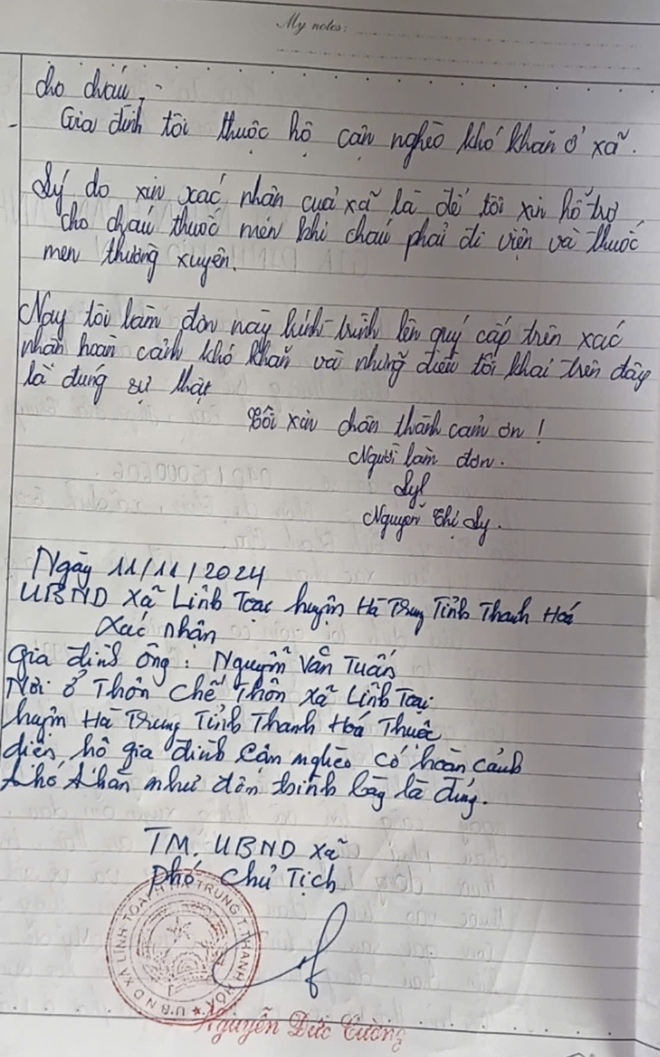 My notes:
cho cháu,
- Gia đình tôi thuộc hộ cận nghèo khó khăn ở xã.
Lý do xin xác nhận của xã là để tôi xin hỗ trợ
cho cháu thuốc men khi cháu phải đi viện và thuốc
men thường xuyên.
Nay tôi làm đơn này kính trình lên quý cấp trên xác
nhận hoàn cảnh khó khăn và những điều tôi khai trên đây
là đúng sự thật
Tôi xin chân thành cảm ơn!
Người làm đơn.
Lý
Nguyễn Thị Lý.
Ngày 11/11/2024
UBND xã Lĩnh Toại huyện Hà Trung Tỉnh Thanh Hoá
Xác nhận
Gia đình ông: Nguyễn Văn Tuấn
Nơi ở Thôn Chế Thôn xã Lĩnh Toại
huyện Hà Trung Tỉnh Thanh Hoá Thuộc
diện hộ gia đình cận nghèo có hoàn cảnh
khó khăn như đơn trình bày là đúng.
TM. UBND xã
Phó Chủ Tịch
U.B.N.D XÃ LĨNH TOẠI H. HÀ TRUNG T. THANH HÓA
Nguyễn Đức Cường